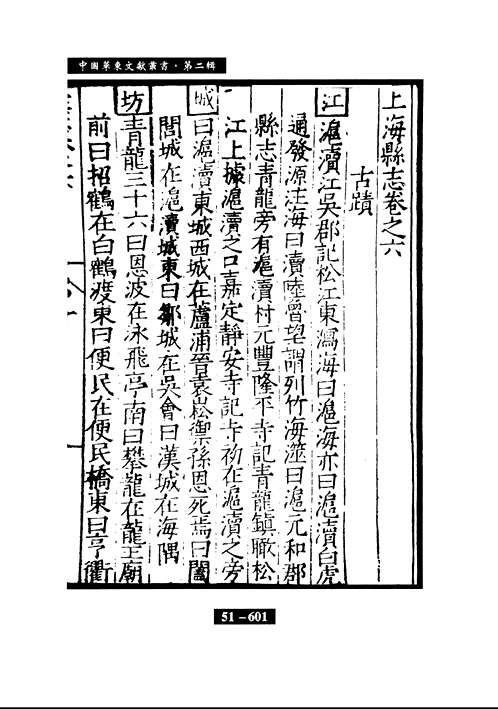 中國華東文獻叢書·第二輯
上海縣志卷之六
古蹟
江滬瀆江吳郡記松江東瀉海曰滬海亦曰滬瀆白虎
通發源注海曰瀆陸魯望謂列竹海澨曰滬元和郡
縣志青龍旁有滬瀆村元豐隆平寺記青龍鎮瞰松
江上據滬瀆之口嘉定靜安寺記寺初在滬瀆之旁
城曰滬瀆東城西城在蘆浦晉袁崧禦孫恩死焉曰闔
閭城在滬瀆城東曰鄒城在吳會曰漢城在海隅
坊青龍三十六曰恩波在泳飛亭南曰攀龍在龍王廟
前曰招鶴在白鶴渡東曰便民在便民橋東曰亨衢
51－601